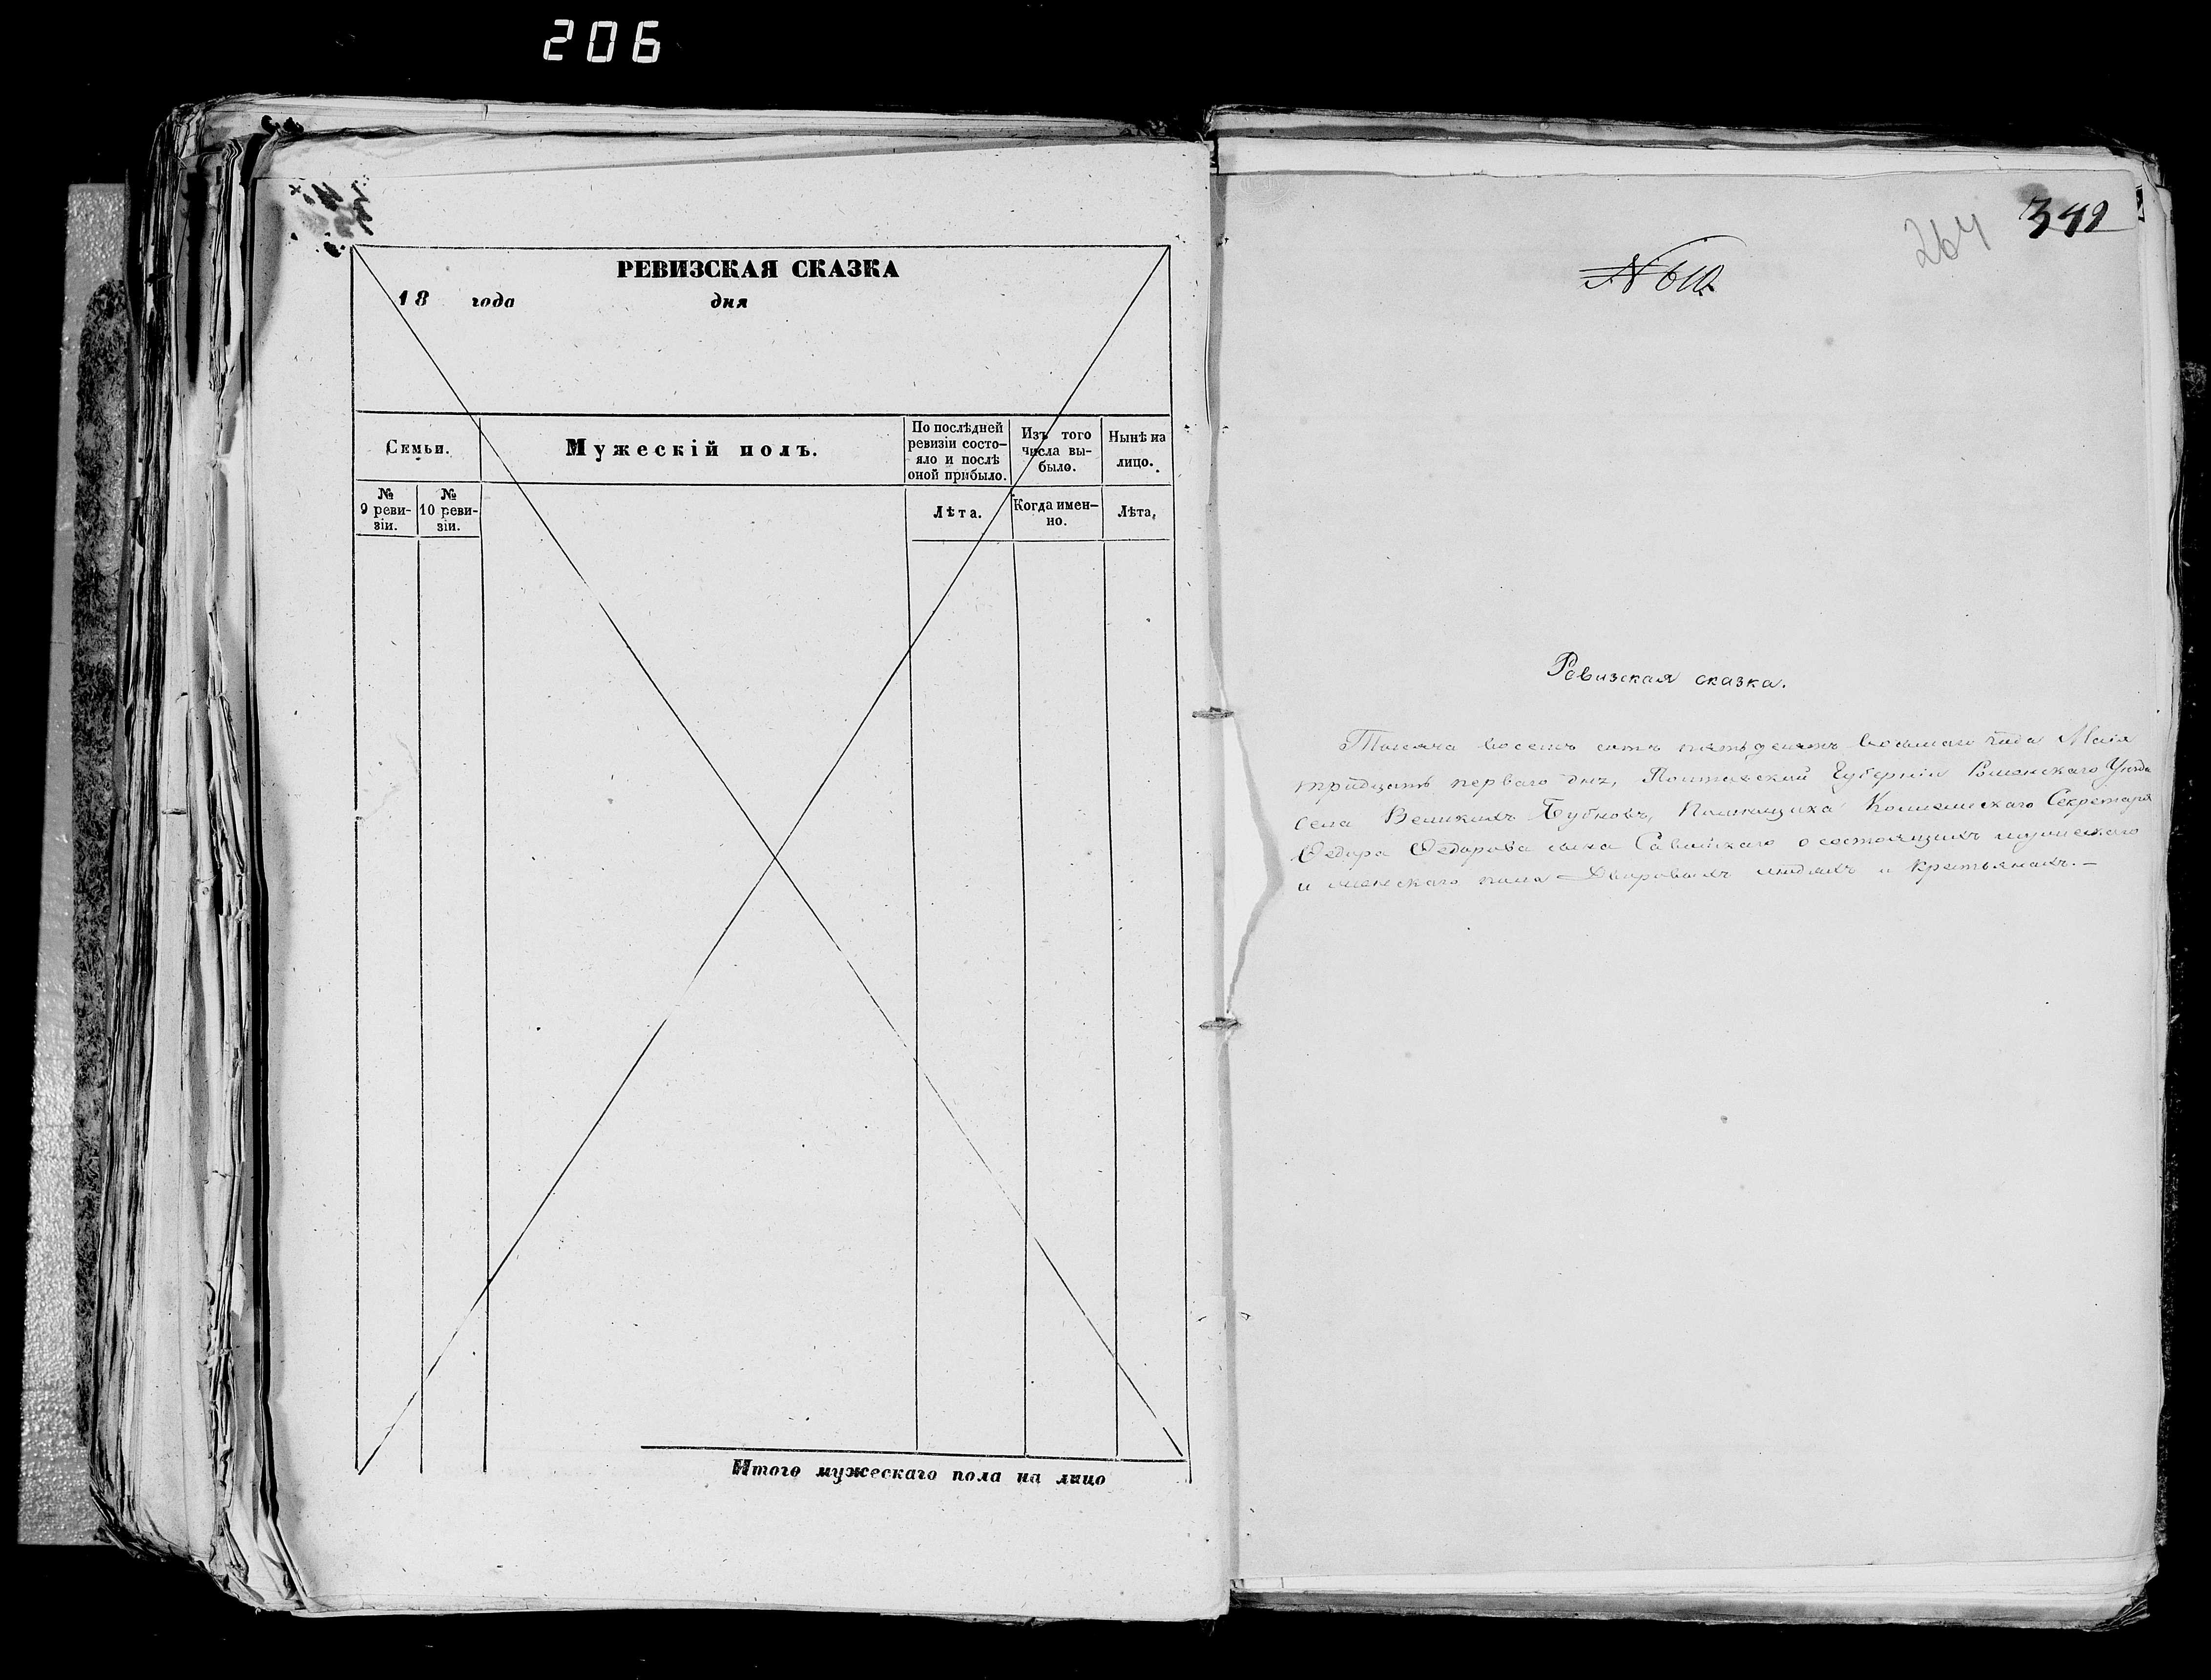 206
РЕВИЗСКАЯ СКАЗКА
18 года дня
Семьи.
Мужескій полъ.
По послѣдней ревизіи состо-
яло и послѣ оной прибыло.
Изъ того числа вы-
было.
Нынѣ на лицо.
№ 9 реви-
зіи.
№ 10 реви-
зіи.
Лѣта.
Когда имен-
но.
Лѣта,
Итого мужескаго пола на лицо
264
349
№ 610
Ревизская сказка.
Тысяча восемь сотъ пятьдесятъ восьмаго года Маія
тридцать перваго дня, Полтавской Губерніи Роменскаго Уѣзда
села Великихъ Бубновъ, Помѣщика Коллежскаго Секретаря
Федора Федорова сына Савицкаго о состоящихъ мужескаго
и женскаго пола Дворовыхъ людяхъ и крестьянахъ.—